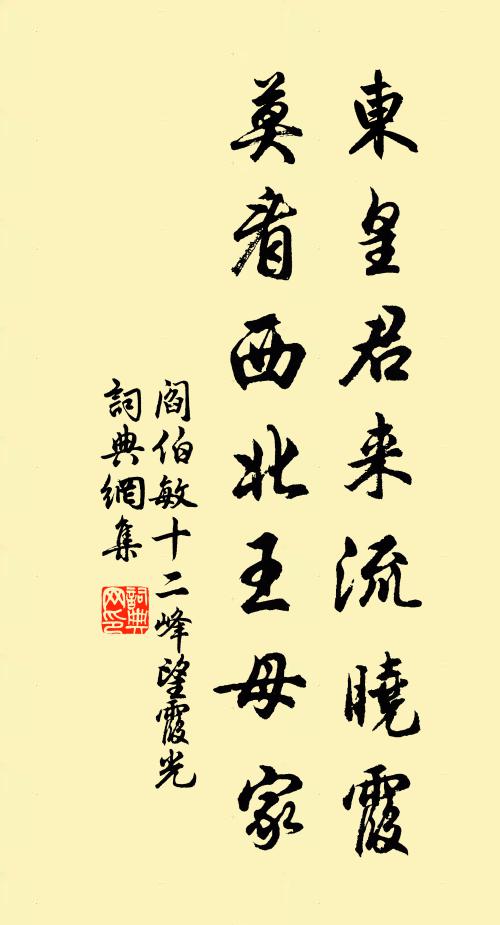 東皇君来流曉霞
莫看西北王母家
閻伯敏十二峰望霞光
詞典網集
詞典
网印